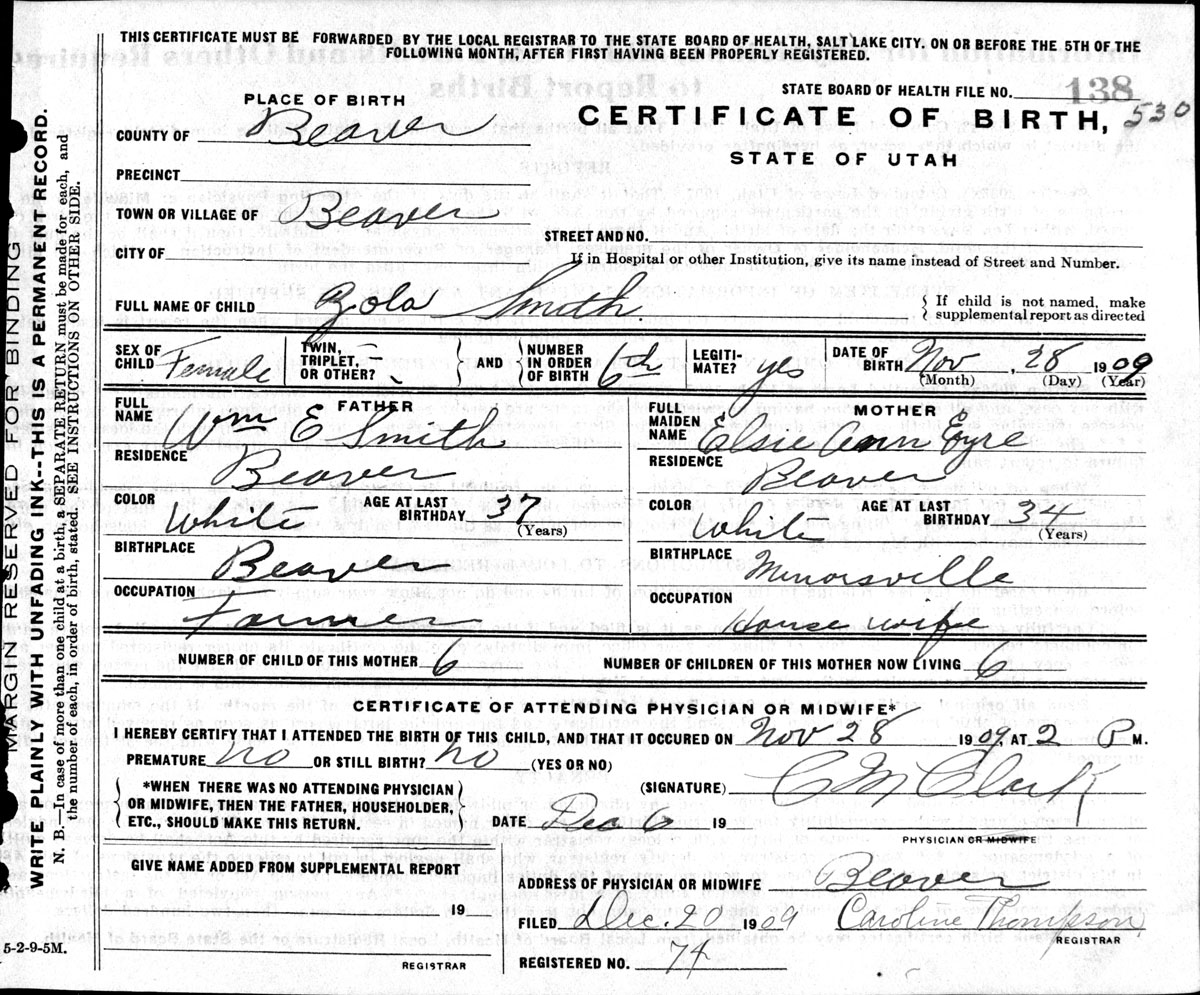 THIS CERTIFICATE MUST BE FORWARDED BY THE LOCAL REGISTRAR TO THE STATE BOARD OF HEALTH, SALT LAKE CITY, ON OR BEFORE THE 5TH OF THE
FOLLOWING MONTH, AFTER FIRST HAVING BEEN PROPERLY REGISTERED.
STATE BOARD OF HEALTH FILE NO. 138
PLACE OF BIRTH
CERTIFICATE OF BIRTH, 530
COUNTY OF Beaver
STATE OF UTAH
PRECINCT
TOWN OR VILLAGE OF Beaver
STREET AND NO.
CITY OF
If in Hospital or other Institution, give its name instead of Street and Number.
FULL NAME OF CHILD Zola Smith
{ If child is not named, make
supplemental report as directed
SEX OF CHILD Female
TWIN, TRIPLET, OR OTHER? } AND { NUMBER IN ORDER OF BIRTH 6th
LEGITIMATE? yes
DATE OF BIRTH Nov, 28 1909
(Month) (Day) (Year)
FATHER
FULL NAME Wm E Smith
RESIDENCE Beaver
COLOR White AGE AT LAST BIRTHDAY 37 (Years)
BIRTHPLACE Beaver
OCCUPATION Farmer
MOTHER
FULL MAIDEN NAME Elsie Ann Eyre
RESIDENCE Beaver
COLOR White AGE AT LAST BIRTHDAY 34 (Years)
BIRTHPLACE Minorsville
OCCUPATION House wife
NUMBER OF CHILD OF THIS MOTHER 6 NUMBER OF CHILDREN OF THIS MOTHER NOW LIVING 6
CERTIFICATE OF ATTENDING PHYSICIAN OR MIDWIFE*
I HEREBY CERTIFY THAT I ATTENDED THE BIRTH OF THIS CHILD, AND THAT IT OCCURED ON Nov 28 1909, AT 2 P M.
PREMATURE no OR STILL BIRTH? no (YES OR NO)
*WHEN THERE WAS NO ATTENDING PHYSICIAN
OR MIDWIFE, THEN THE FATHER, HOUSEHOLDER,
ETC., SHOULD MAKE THIS RETURN.
(SIGNATURE) C M Clark
DATE Dec 6 19
PHYSICIAN OR MIDWIFE
GIVE NAME ADDED FROM SUPLEMENTAL REPORT
19
REGISTRAR
ADDRESS OF PHYSICIAN OR MIDWIFE Beaver
FILED Dec. 20 1909 Caroline Thompson,
REGISTRAR
REGISTERED NO. 74
5-2-9-5M.
MARGIN RESERVED FOR BINDING
WRITE PLAINLY WITH UNFADING INK--THIS IS A PERMANENT RECORD.
N. B.—In case of more than one child at a birth, a SEPARATE RETURN must be made for each, and
the number of each, in order of birth, stated. SEE INSTRUCTIONS ON OTHER SIDE.